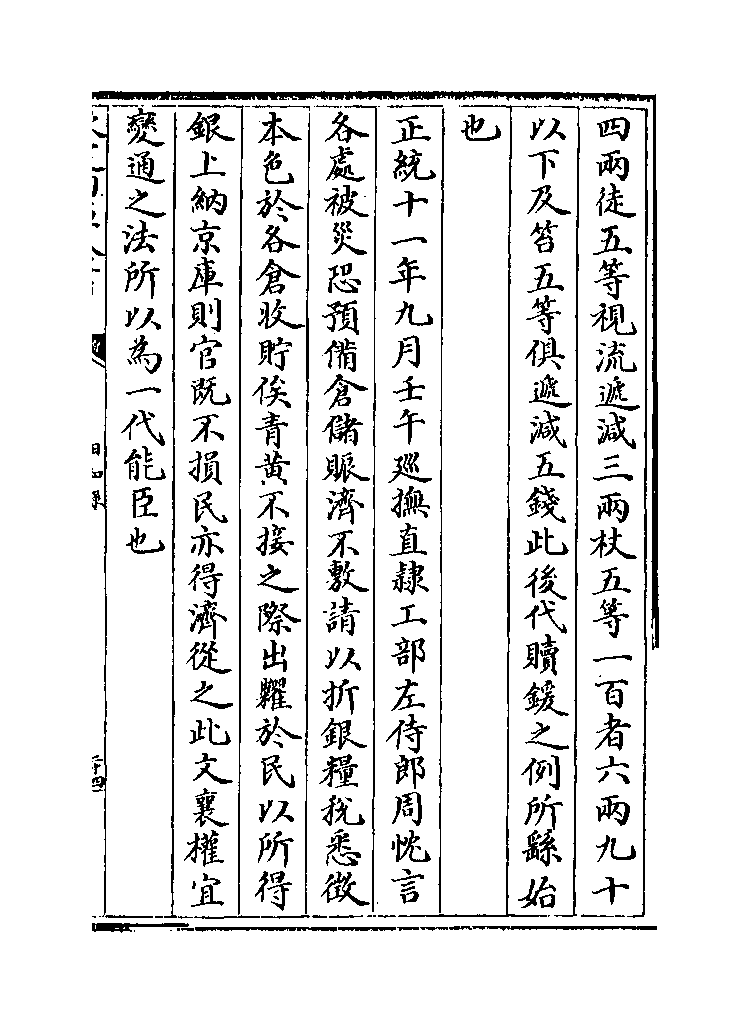 四兩徒五等視流遞減三兩杖五等一百者六兩九十
以下及笞五等俱遞減五錢此後代贖鍰之例所繇始
也
正統十一年九月壬午廵撫直隷工部左侍郎周忱言
各處被災恐預備倉儲賑濟不敷請以折銀糧稅悉徴
本色於各倉收貯俟青黄不接之際出糶於民以所得
銀上納京庫則官既不損民亦得濟從之此文襄權宜
變通之法所以為一代能臣也
日知錄
二十四